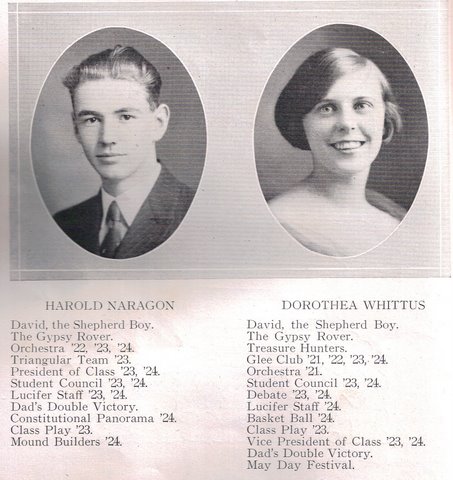 HAROLD NARAGON
David, the Shepherd Boy.
The Gypsy Rover.
Orchestra '22, '23, '24.
Triangular Team '23.
President of Class '23, '24.
Student Council '23, '24.
Lucifer Staff '23, '24.
Dad's Double Victory.
Constitutional Panorama '24.
Class Play '23.
Mound Builders '24.
DOROTHEA WHITTUS
David, the Shepherd Boy.
The Gypsy Rover.
Treasure Hunters.
Glee Club '21, '22, '23, '24.
Orchestra '21.
Student Council '23, '24.
Debate '23, '24.
Lucifer Staff '24.
Basket Ball '24.
Class Play '23.
Vice President of Class '23, '24.
Dad's Double Victory.
May Day Festival.